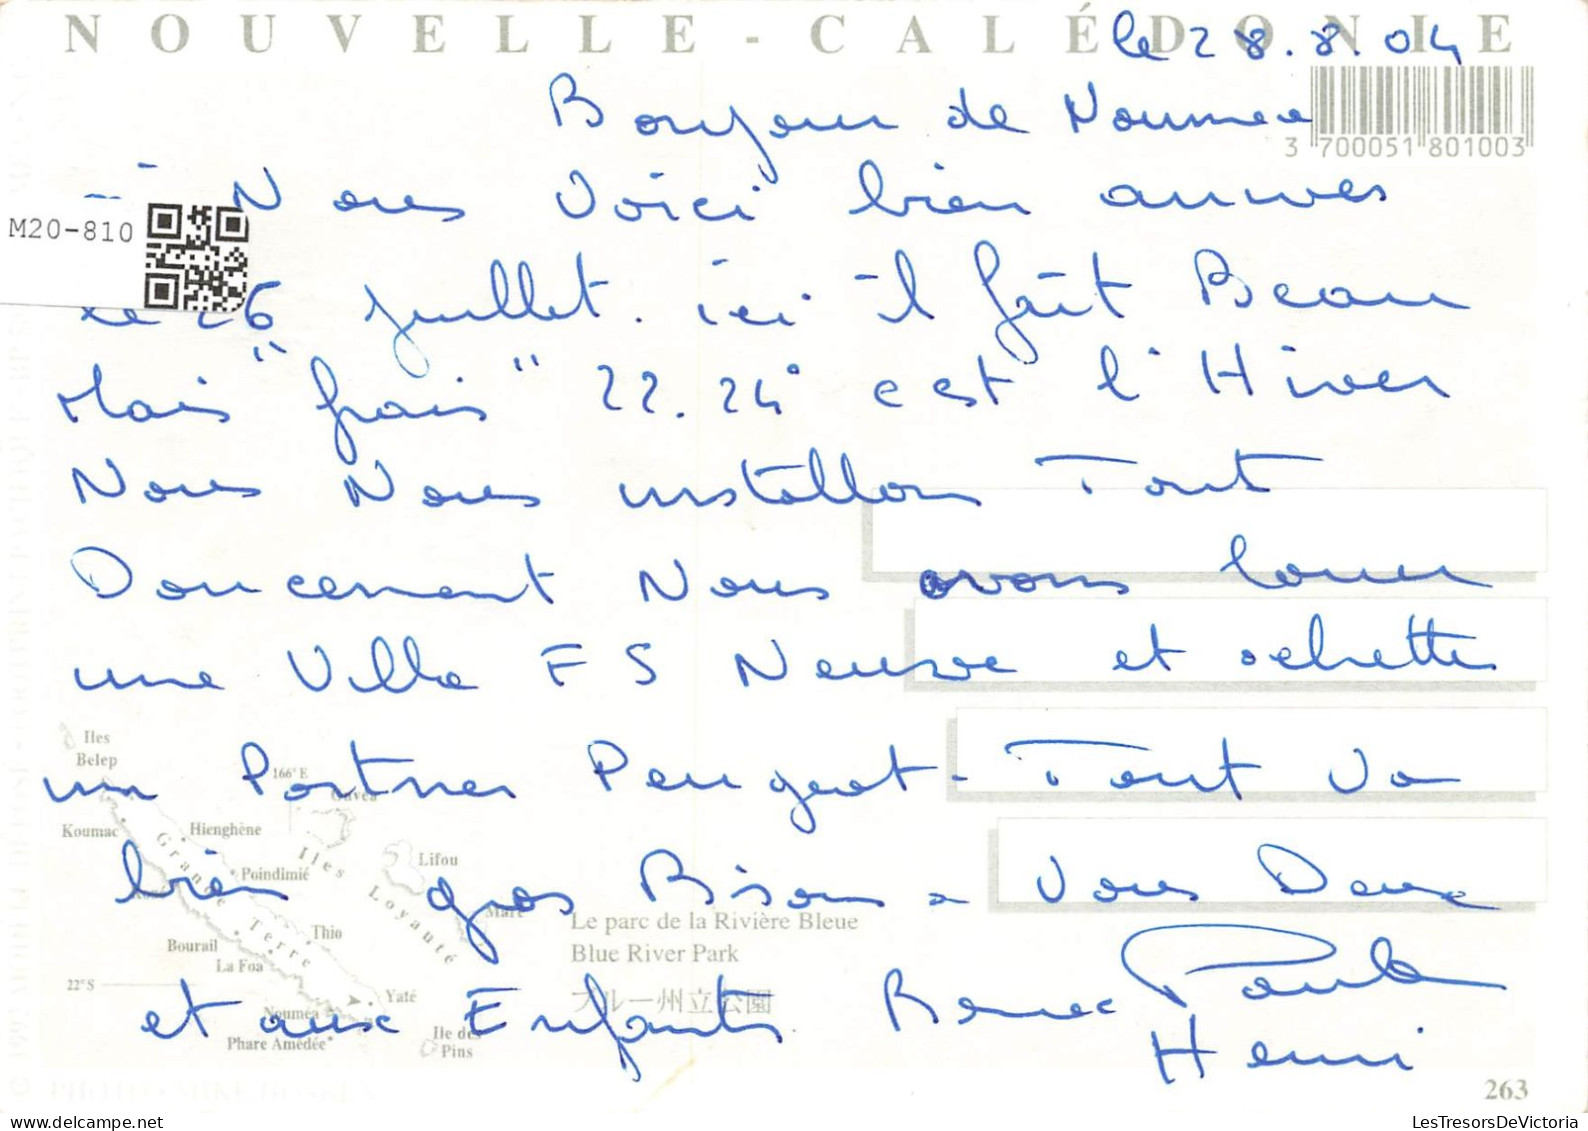 NOUVELLE-CALÉDONIE
le 28.8.04
Bonjour de Noumea
3 700051 801003
Nous Voici bien arrives
M20-810
le 26 juillet. ici il fait Beau
Mais "frais" 22.24° c est l'Hiver
Nous Nous installons Tout
Doucement Nous avons louer
une Villa F5 Neuve et achetter
un Partner Peugeot - Tout Va
bien gros Bisous a Vous Deux
et aux Enfants Renee Paul
Henri
Iles
Belep
166° E
Ouvéa
Koumac
Hienghène
Poindimié
Lifou
Iles Loyauté
Grande Terre
Maré
Thio
Bourail
La Foa
22° S
Yaté
Nouméa
Phare Amédée
Ile des
Pins
Le parc de la Rivière Bleue
Blue River Park
ブルー州立公園
263
LesTresorsDeVictoria